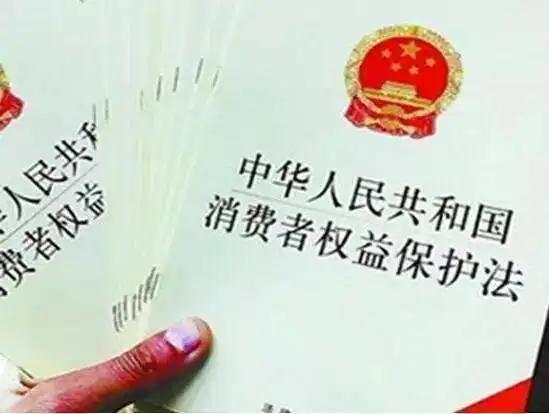 中华人民共和国
消费者权益保护法
华人民共和
消费者权益